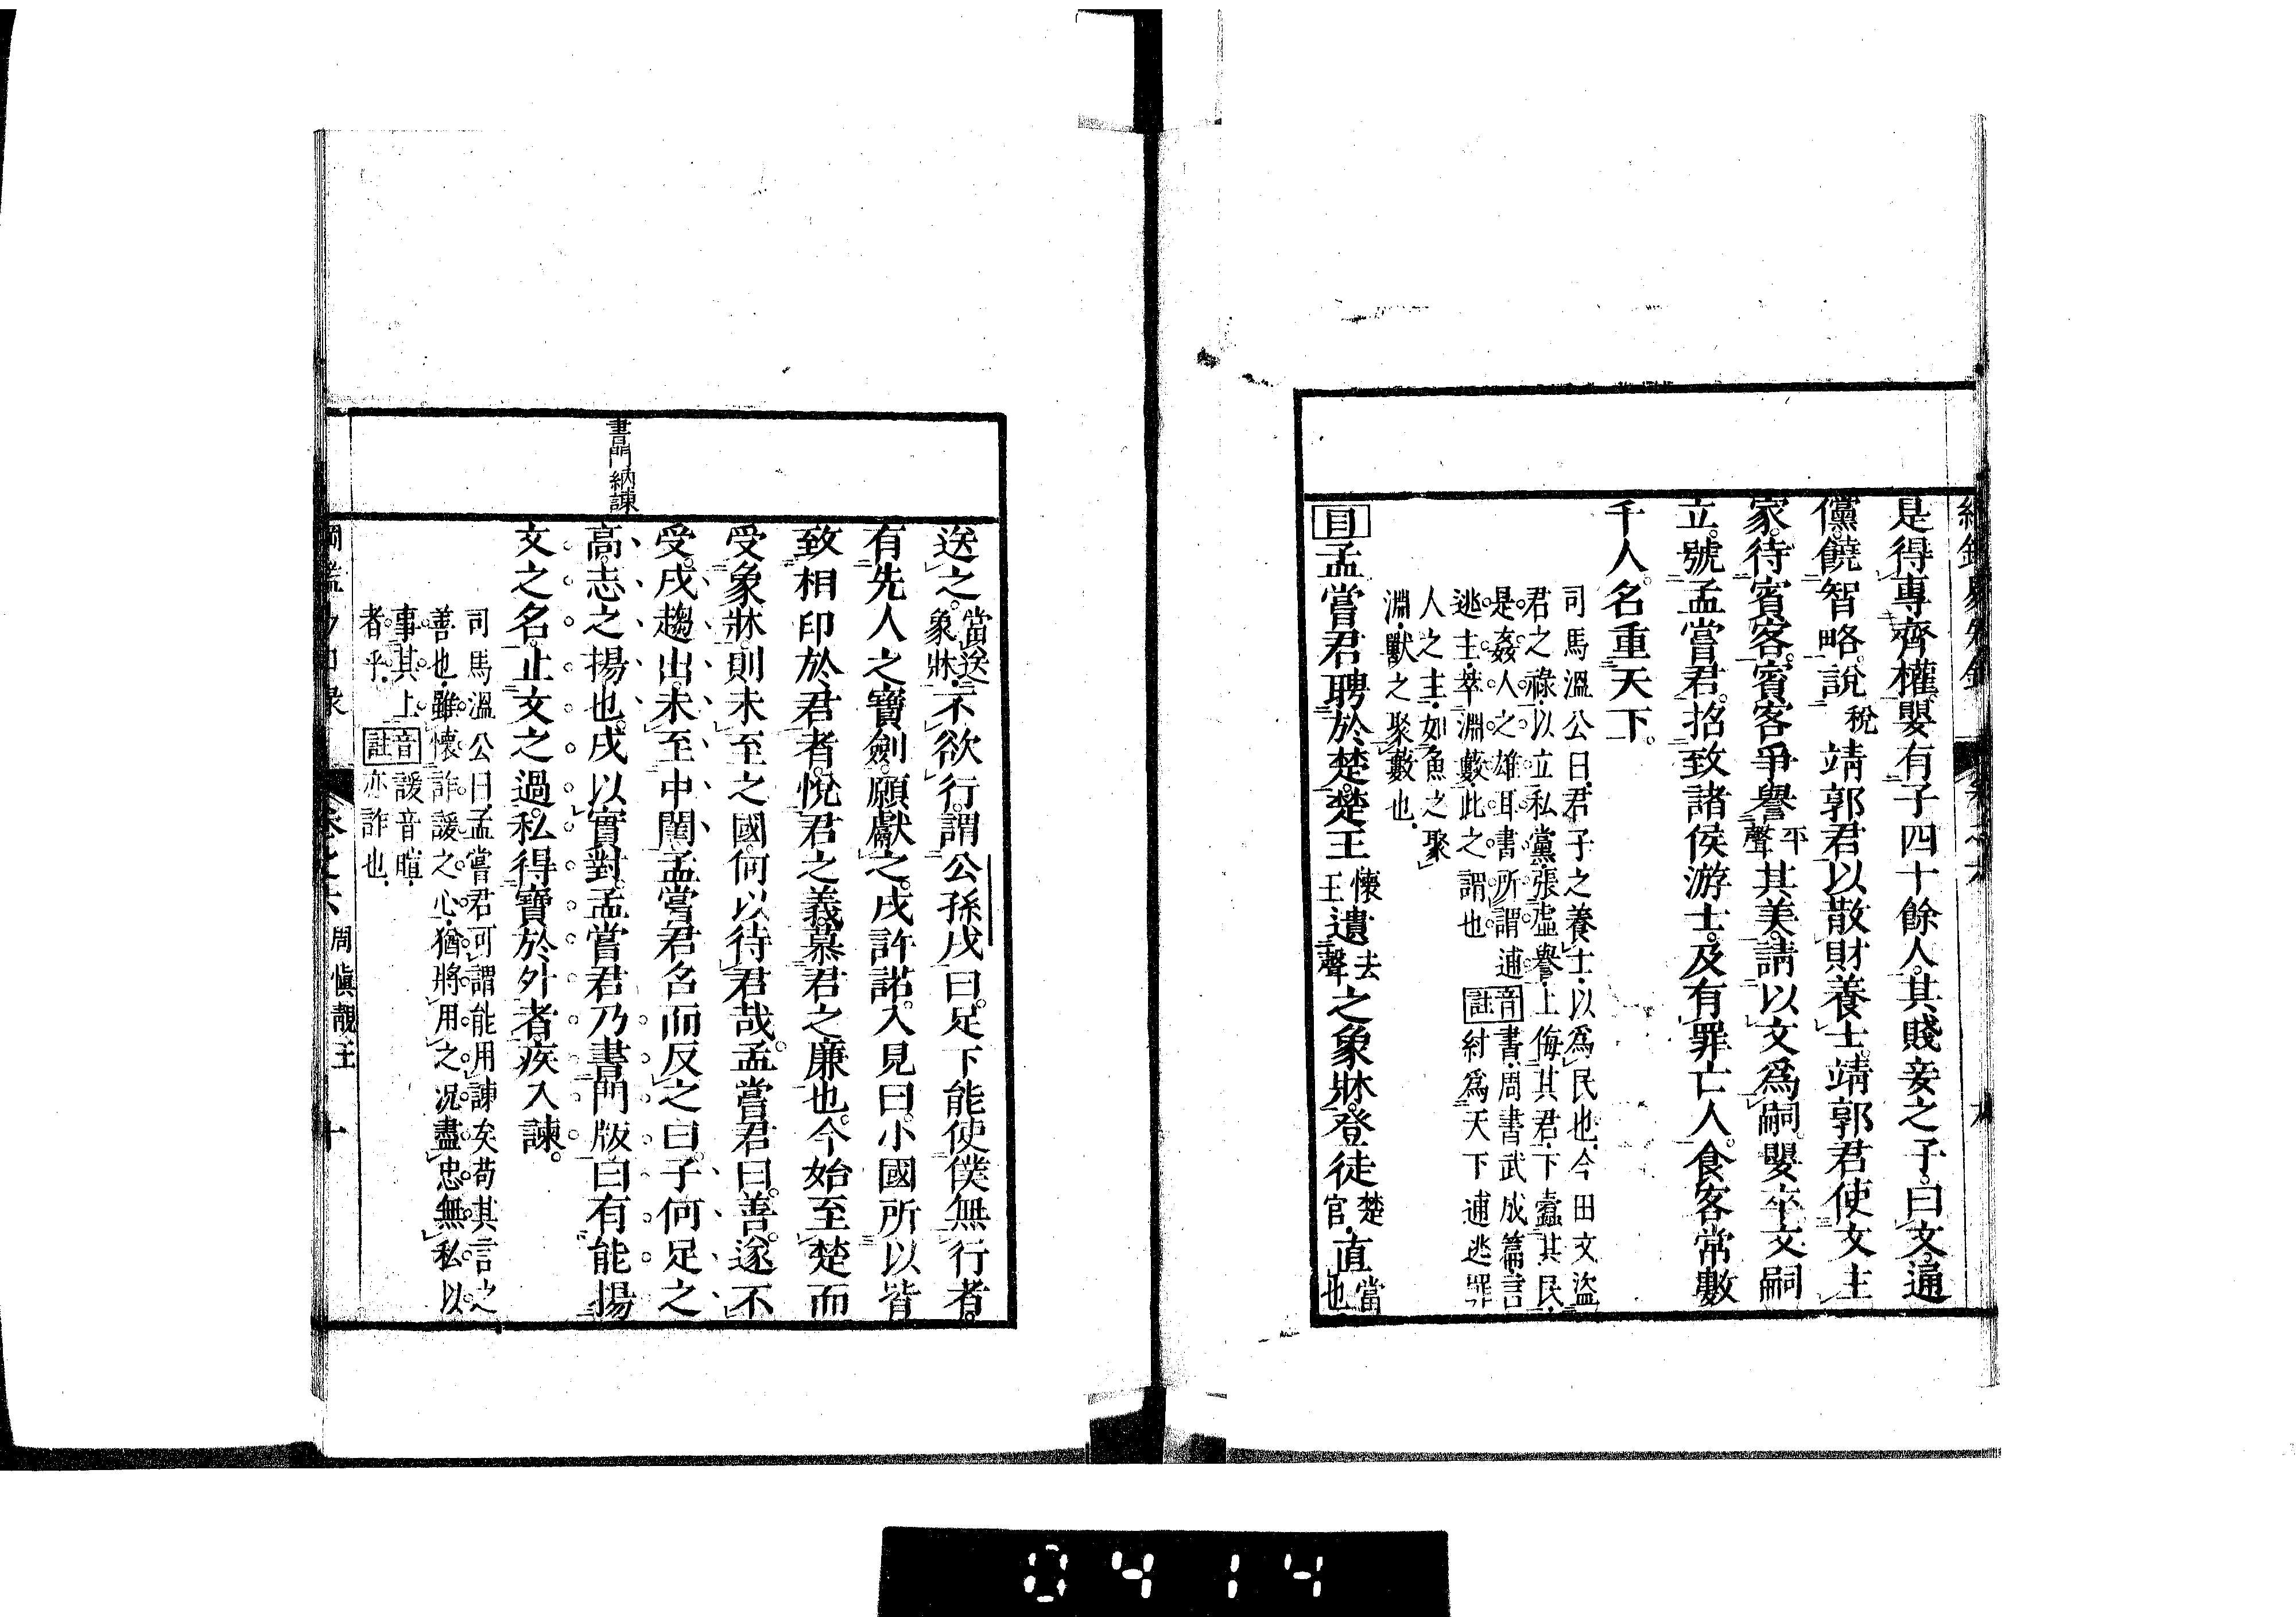 是得專齊權嬰有子四十餘人其賤妾之子曰文通
儻饒智略說稅靖郭君以散財養士靖郭君使文主
家待賓客賓客爭譽平聲其美請以文爲嗣嬰卒文嗣
立號孟嘗君招致諸侯游士及有罪亡人食客常數
千人名重天下
司馬溫公曰君子之養士以爲民也今田文盜
君之祿以立私黨張虛譽上侮其君下蠹其民
是姦人之雄耳書所謂逋逃主萃淵藪此之謂也
音註書周書武成篇言紂爲天下逋逃罪
人之主如魚之聚淵獸之聚藪也
目孟嘗君聘於楚楚王懷王遺去聲之象牀登徒楚官直當也
送之當送象牀不欲行謂公孫戌曰足下能使僕無行者
有先人之寶劍願獻之戌許諾入見曰小國所以皆
致相印於君者悅君之義慕君之廉也今始至楚而
受象牀則未至之國何以待君哉孟嘗君曰善遂不
受戌趨出未至中閨孟嘗君召而反之曰子何足之
高志之揚也戌以實對孟嘗君乃書門版曰有能揚
文之名止文之過私得寶於外者疾入諫
書門納諫
司馬溫公曰孟嘗君可謂能用諫矣苟其言之
善也雖懷詐諼之心猶將用之況盡忠無私以
事其上者乎
音註諼音暄亦詐也
卷之六 周愼靚王 十